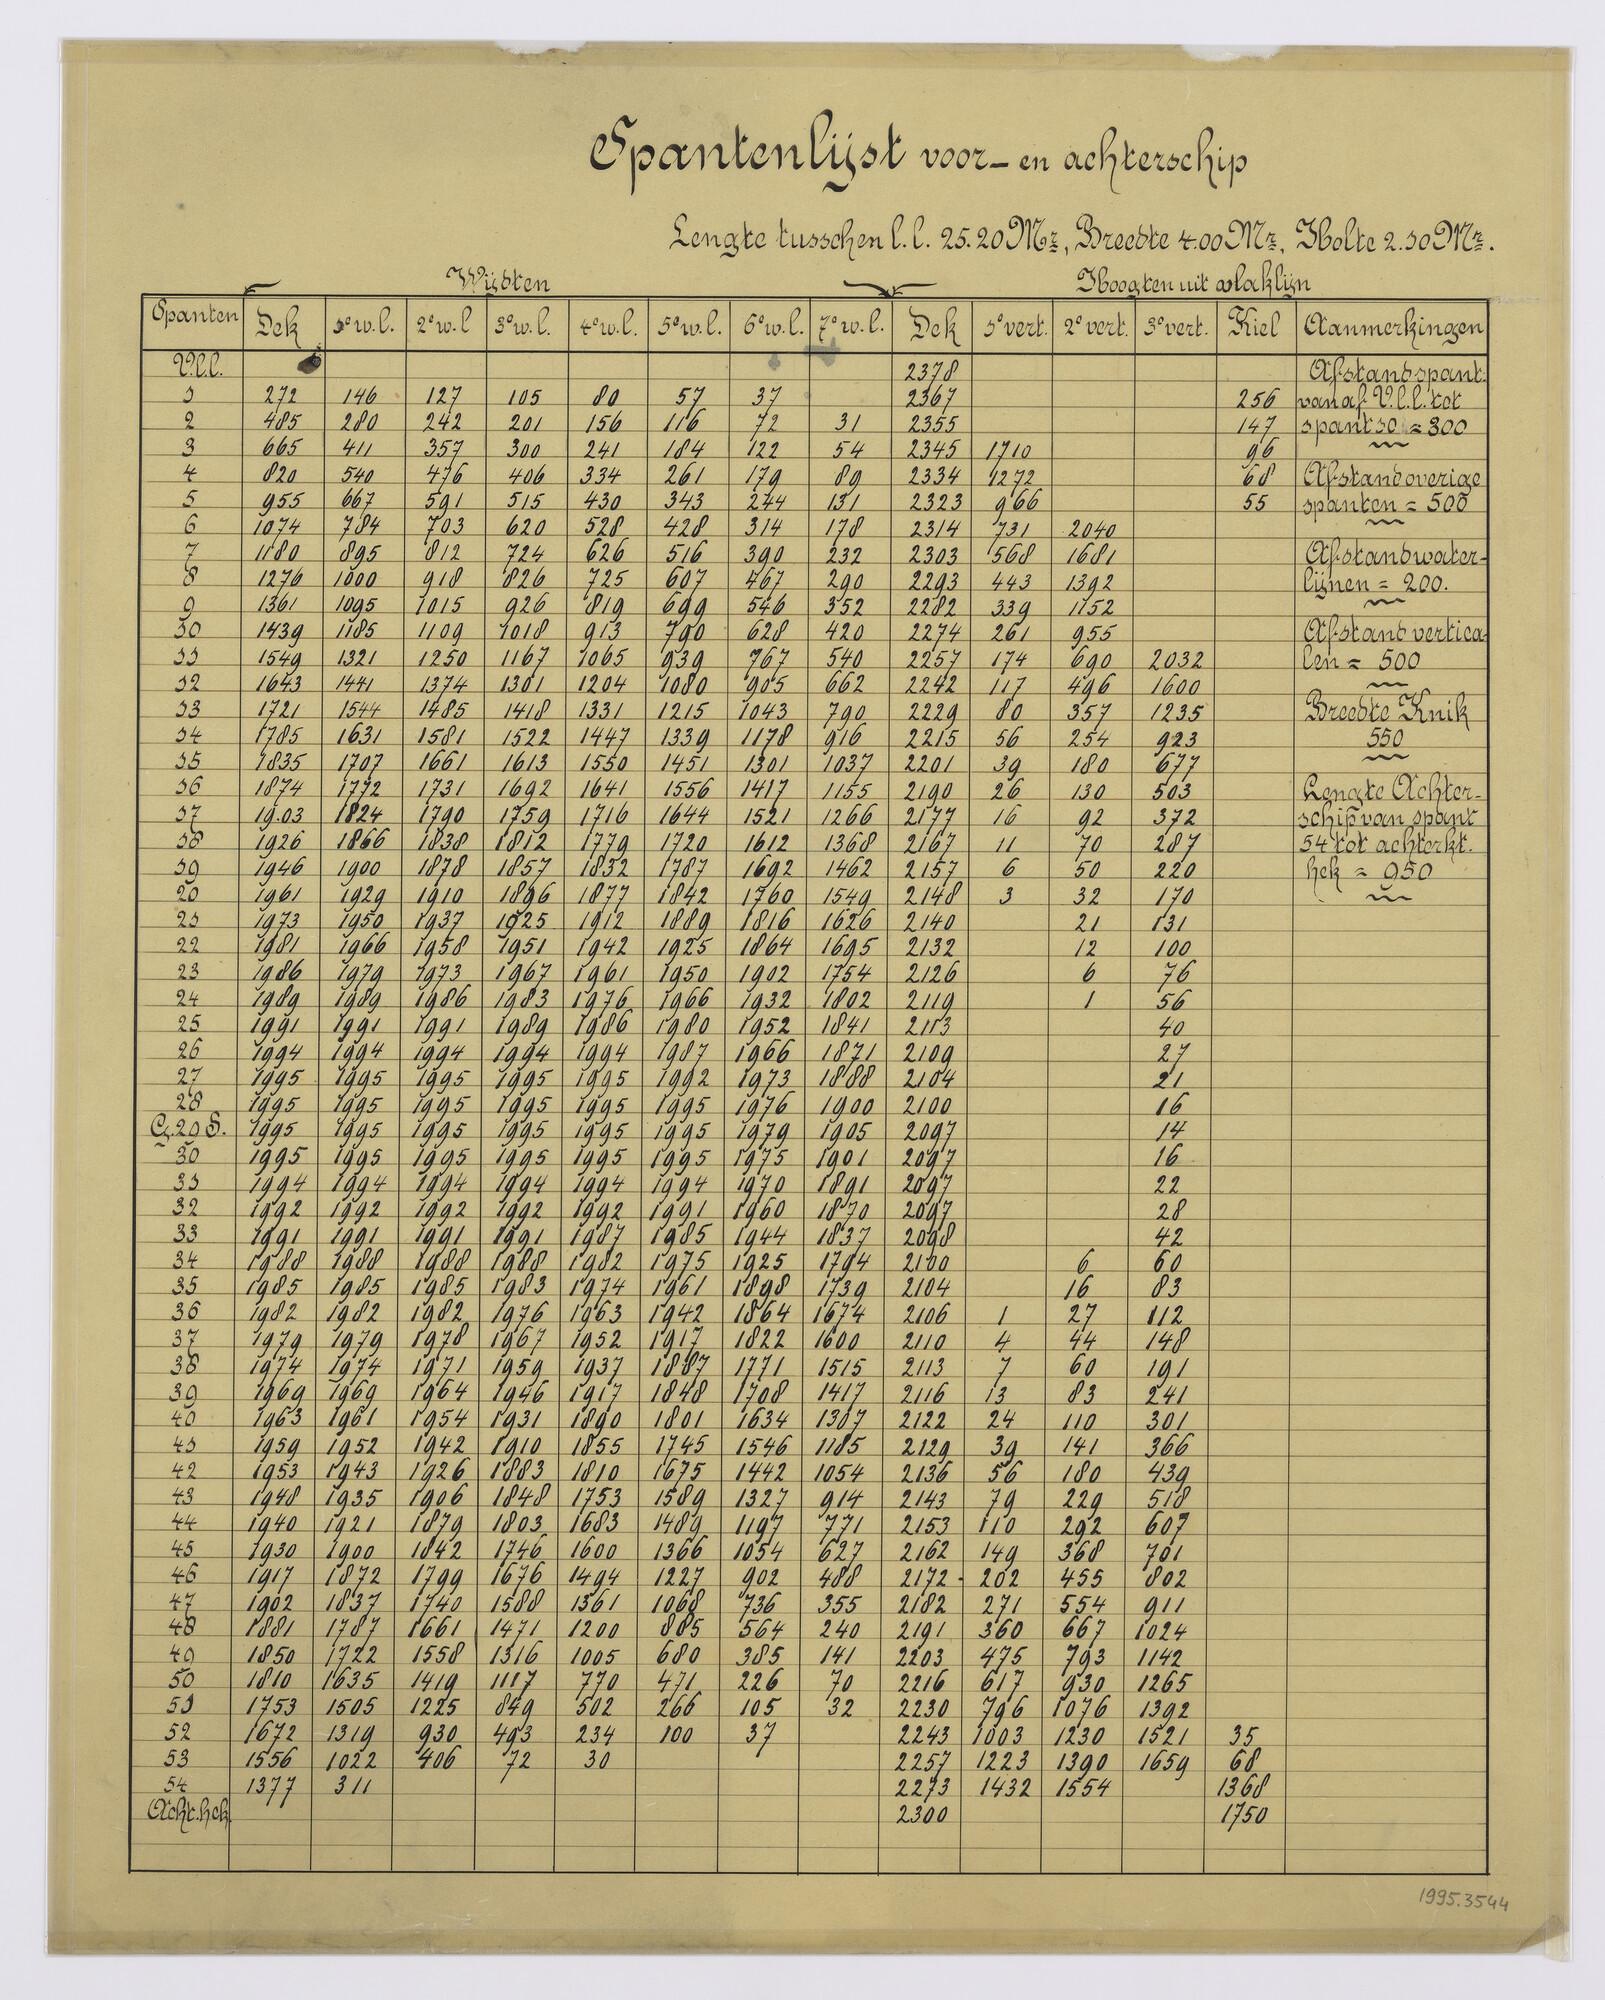 Spantenlijst voor- en achterschip
Lengte tusschen l.l. 25.20 Mr, Breedte 4.00 Mr, Holte 2.10 Mr.
Wijdten Hoogten uit vlaklijn
Spanten Dek 1e w.l. 2e w.l 3e w.l. 4e w.l. 5e w.l. 6e w.l. 7e w.l. Dek 1e vert. 2e vert. 3e vert. Kiel Aanmerkingen
V.l.l. 2378 Afstand spant.
1 272 146 127 105 80 57 37 2367 256 vanaf V.l.l. tot
2 485 280 242 201 156 116 72 31 2355 147 spant 10 = 300
3 665 411 357 300 241 184 122 54 2345 1710 96
4 820 540 476 406 334 261 179 89 2334 1272 68 Afstand overige
5 955 667 591 515 430 343 244 131 2323 966 55 spanten = 500
6 1074 784 703 620 528 428 314 178 2314 731 2040
7 1180 895 812 724 626 516 390 232 2303 568 1681 Afstand water-
8 1276 1000 918 826 725 607 467 290 2293 443 1392 lijnen = 200.
9 1361 1095 1015 926 819 699 546 352 2282 339 1152
10 1439 1185 1109 1018 913 790 628 420 2274 261 955 Afstand vertica-
11 1549 1321 1250 1167 1065 939 767 540 2257 174 690 2032 len = 500
12 1643 1441 1374 1301 1204 1080 905 662 2242 117 496 1600
13 1721 1544 1485 1418 1331 1215 1043 790 2229 80 357 1235 Breedte Knik
14 1785 1631 1581 1522 1447 1339 1178 916 2215 56 254 923 550
15 1835 1707 1661 1613 1550 1451 1301 1037 2201 39 180 677
16 1874 1772 1731 1692 1641 1556 1417 1155 2190 26 130 503 Lengte Achter-
17 19.03 1824 1790 1759 1716 1644 1521 1266 2177 16 92 372 schip van spant
18 1926 1866 1838 1812 1779 1720 1612 1368 2167 11 70 287 54 tot achterkt.
19 1946 1900 1878 1857 1832 1787 1692 1462 2157 6 50 220 hek = 950
20 1961 1929 1910 1896 1877 1842 1760 1549 2148 3 32 170
21 1973 1950 1937 1925 1912 1889 1816 1626 2140 21 131
22 1981 1966 1958 1951 1942 1925 1864 1695 2132 12 100
23 1986 1979 1973 1967 1961 1950 1902 1754 2126 6 76
24 1989 1989 1986 1983 1976 1966 1932 1802 2119 1 56
25 1991 1991 1991 1989 1986 1980 1952 1841 2113 40
26 1994 1994 1994 1994 1994 1987 1966 1871 2109 27
27 1995 1995 1995 1995 1995 1992 1973 1888 2104 21
28 1995 1995 1995 1995 1995 1995 1976 1900 2100 16
G. 29 S. 1995 1995 1995 1995 1995 1995 1979 1905 2097 14
30 1995 1995 1995 1995 1995 1995 1975 1901 2097 16
31 1994 1994 1994 1994 1994 1994 1970 1891 2097 22
32 1992 1992 1992 1992 1992 1991 1960 1870 2097 28
33 1991 1991 1991 1991 1987 1985 1944 1837 2098 42
34 1988 1988 1988 1988 1982 1975 1925 1794 2100 6 60
35 1985 1985 1985 1983 1974 1961 1898 1739 2104 16 83
36 1982 1982 1982 1976 1963 1942 1864 1674 2106 1 27 112
37 1979 1979 1978 1967 1952 1917 1822 1600 2110 4 44 148
38 1974 1974 1971 1959 1937 1887 1771 1515 2113 7 60 191
39 1969 1969 1964 1946 1917 1848 1708 1417 2116 13 83 241
40 1963 1961 1954 1931 1890 1801 1634 1307 2122 24 110 301
41 1959 1952 1942 1910 1855 1745 1546 1185 2129 39 141 366
42 1953 1943 1926 1883 1810 1675 1442 1054 2136 56 180 439
43 1948 1935 1906 1848 1753 1589 1327 914 2143 79 229 518
44 1940 1921 1879 1803 1683 1489 1197 771 2153 110 292 607
45 1930 1900 1842 1746 1600 1366 1054 627 2162 149 368 701
46 1917 1872 1799 1676 1494 1227 902 488 2172 202 455 802
47 1902 1837 1740 1588 1361 1068 736 355 2182 271 554 911
48 1881 1787 1661 1471 1200 885 564 240 2191 360 667 1024
49 1850 1722 1558 1316 1005 680 385 141 2203 475 793 1142
50 1810 1635 1419 1117 770 471 226 70 2216 617 930 1265
51 1753 1505 1225 849 502 266 105 32 2230 796 1076 1392
52 1672 1319 930 493 234 100 37 2243 1003 1230 1521 35
53 1556 1022 406 72 30 2257 1223 1390 1659 68
54 1377 311 2273 1432 1554 1368
Acht.hek. 2300 1750
1995.3544